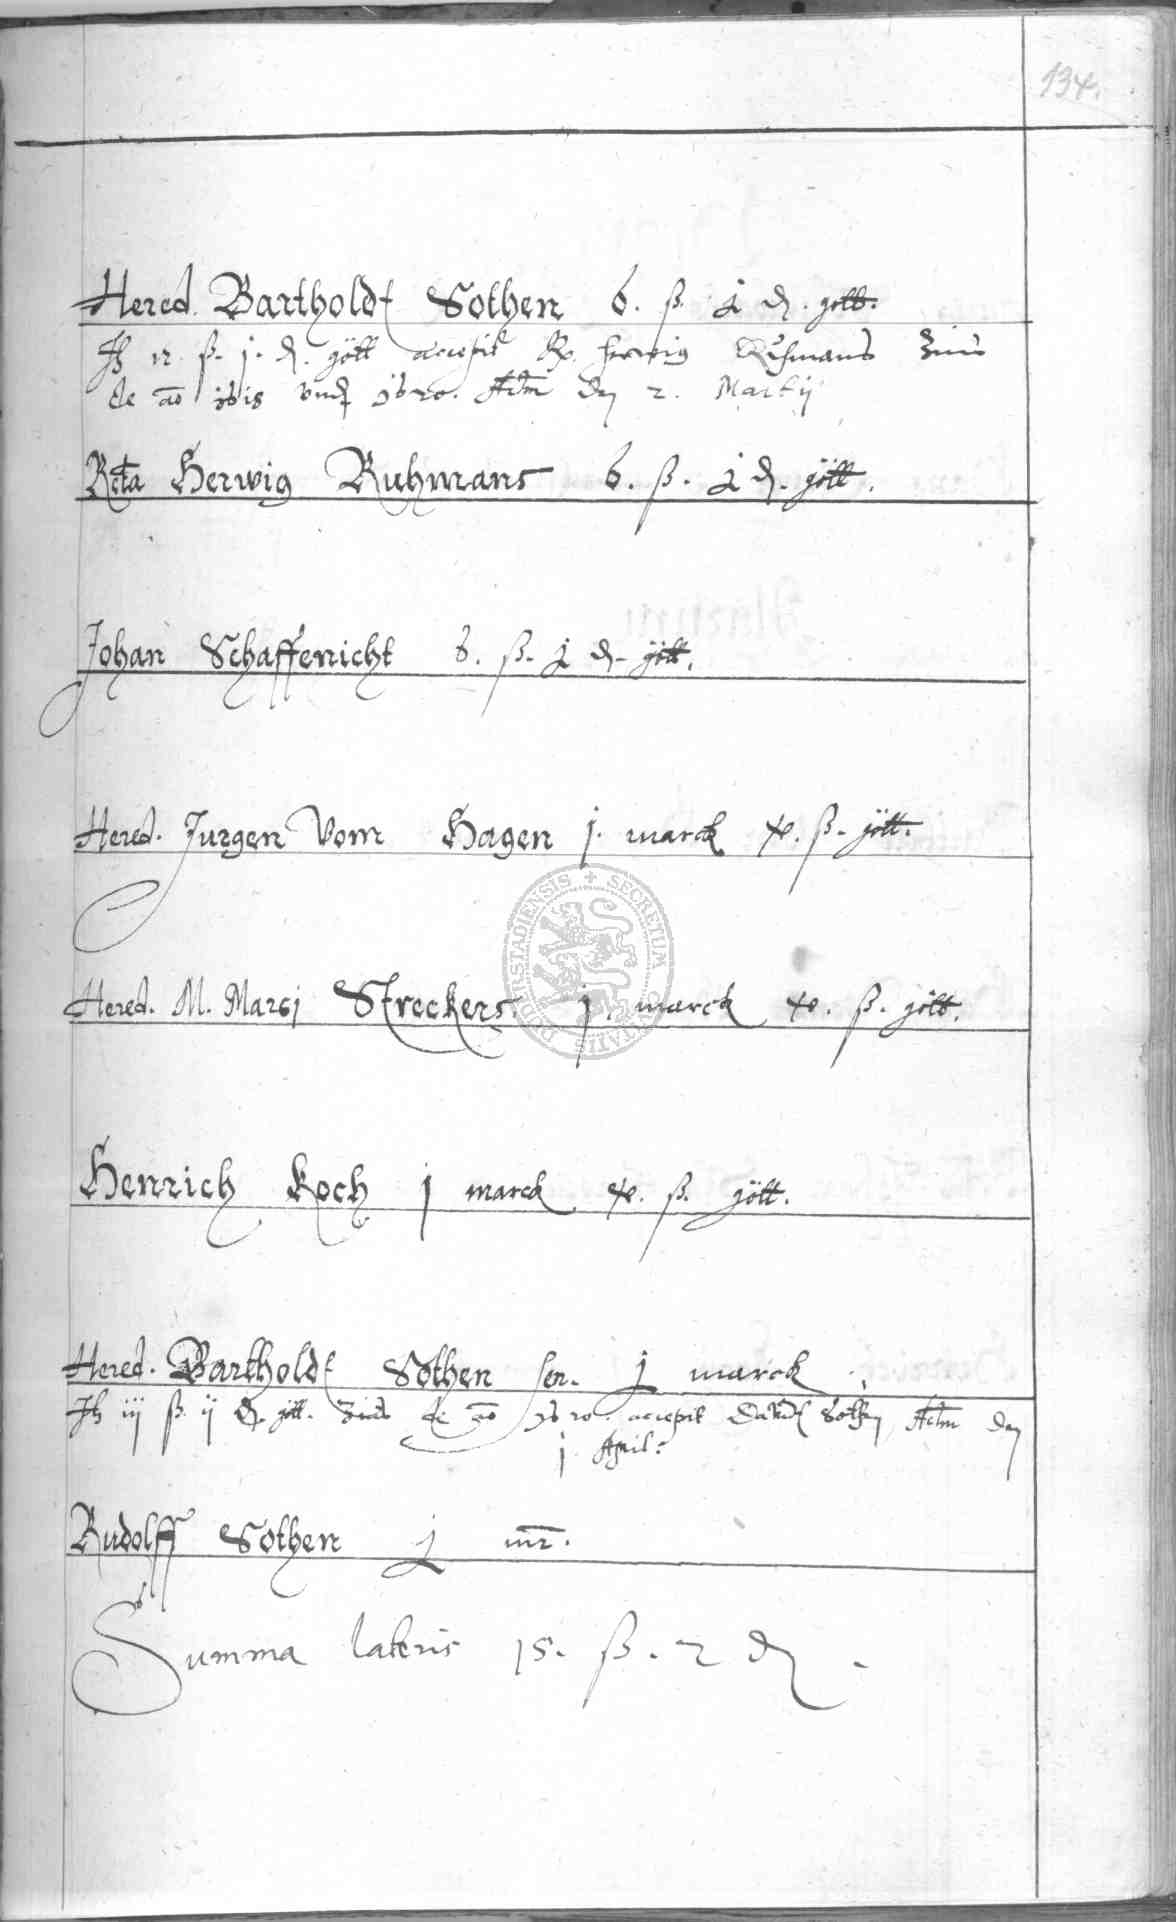 134.
Hered. Bartholdt Sothen 6. ß. j ₰. gött.
ß. j. ₰. gött accepit Herwig Ruhmans Zins
de ao 1619 und 1620. Actum den 2. Martij
Relicta Herwig Ruhmans 6. ß. j ₰. gött.
Johan Schaffenicht 6. ß. j ₰. gött.
Hered. Jurgen Vom Hagen j. marck 4. ß. gött.
Hered. M. Marci Streckers. j. marck 4. ß. gött.
Henrich Koch j marck 4. ß. gött.
Hered. Bartholdt Sothen sen. j marck.
iij ß ij ₰. gött. Zins de ao 1620. accepit Sothen Actum den
j. April:
Rudolff Sothen j mr.
Summa lateris 15. ß. 2 ₰.
SECRETUM CIVITATIS DUDERSTADIENSIS